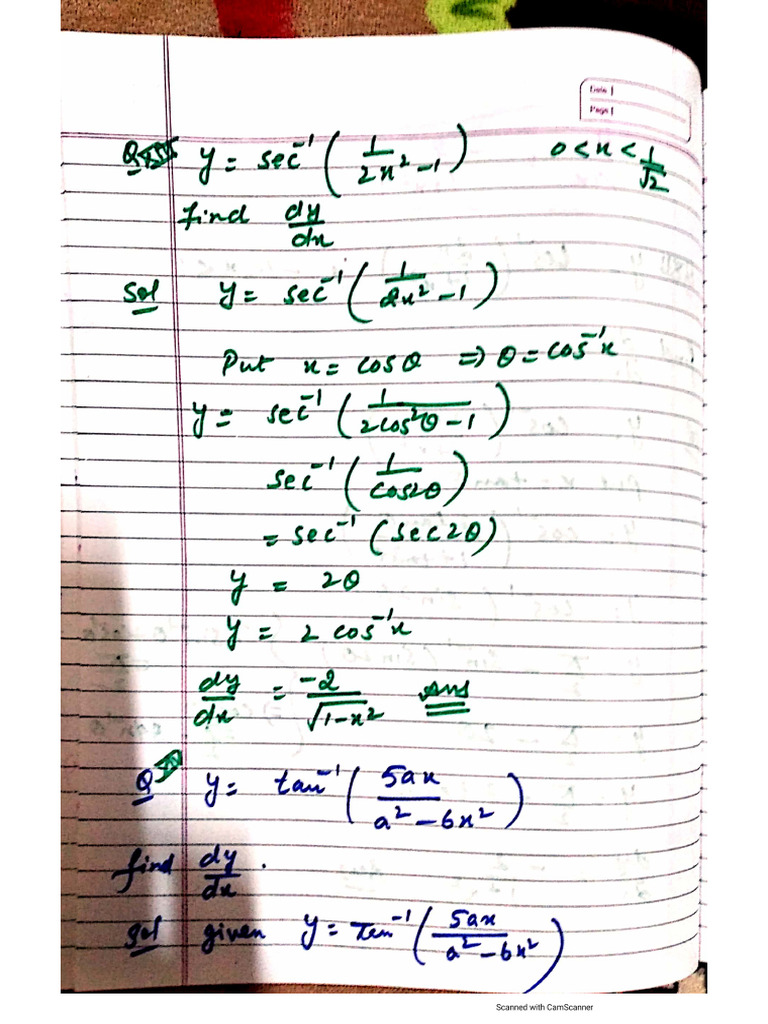 Date |
Page |
Q y = sec⁻¹ ( 1 / 2x² - 1 ) 0 < x < 1/√2
find dy/dx
Sol y = sec⁻¹ ( 1 / 2x² - 1 )
Put x = cos θ ⇒ θ = cos⁻¹x
y = sec⁻¹ ( 1 / 2cos²θ - 1 )
sec⁻¹ ( 1 / cos2θ )
= sec⁻¹ (sec 2θ)
y = 2θ
y = 2 cos⁻¹x
dy/dx = -2 / √1-x² Ans
Q y = tan⁻¹ ( 5ax / a² - 6x² )
find dy/dx .
Sol given y = Tan⁻¹ ( 5ax / a² - 6x² )
Scanned with CamScanner